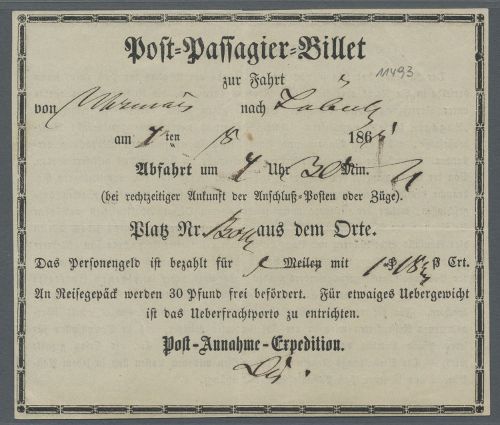 Post-Passagier-Billet
zur Fahrt
11493
von nach
am ten 8 186
Abfahrt um Uhr 30 Min.
(bei rechtzeitiger Ankunft der Anschluß-Posten oder Züge).
Platz Nr. aus dem Orte.
Das Personengeld ist bezahlt für Meilen mit 18 Crt.
An Reisegepäck werden 30 Pfund frei befördert. Für etwaiges Uebergewicht
ist das Ueberfrachtporto zu entrichten.
Post-Annahme-Expedition.